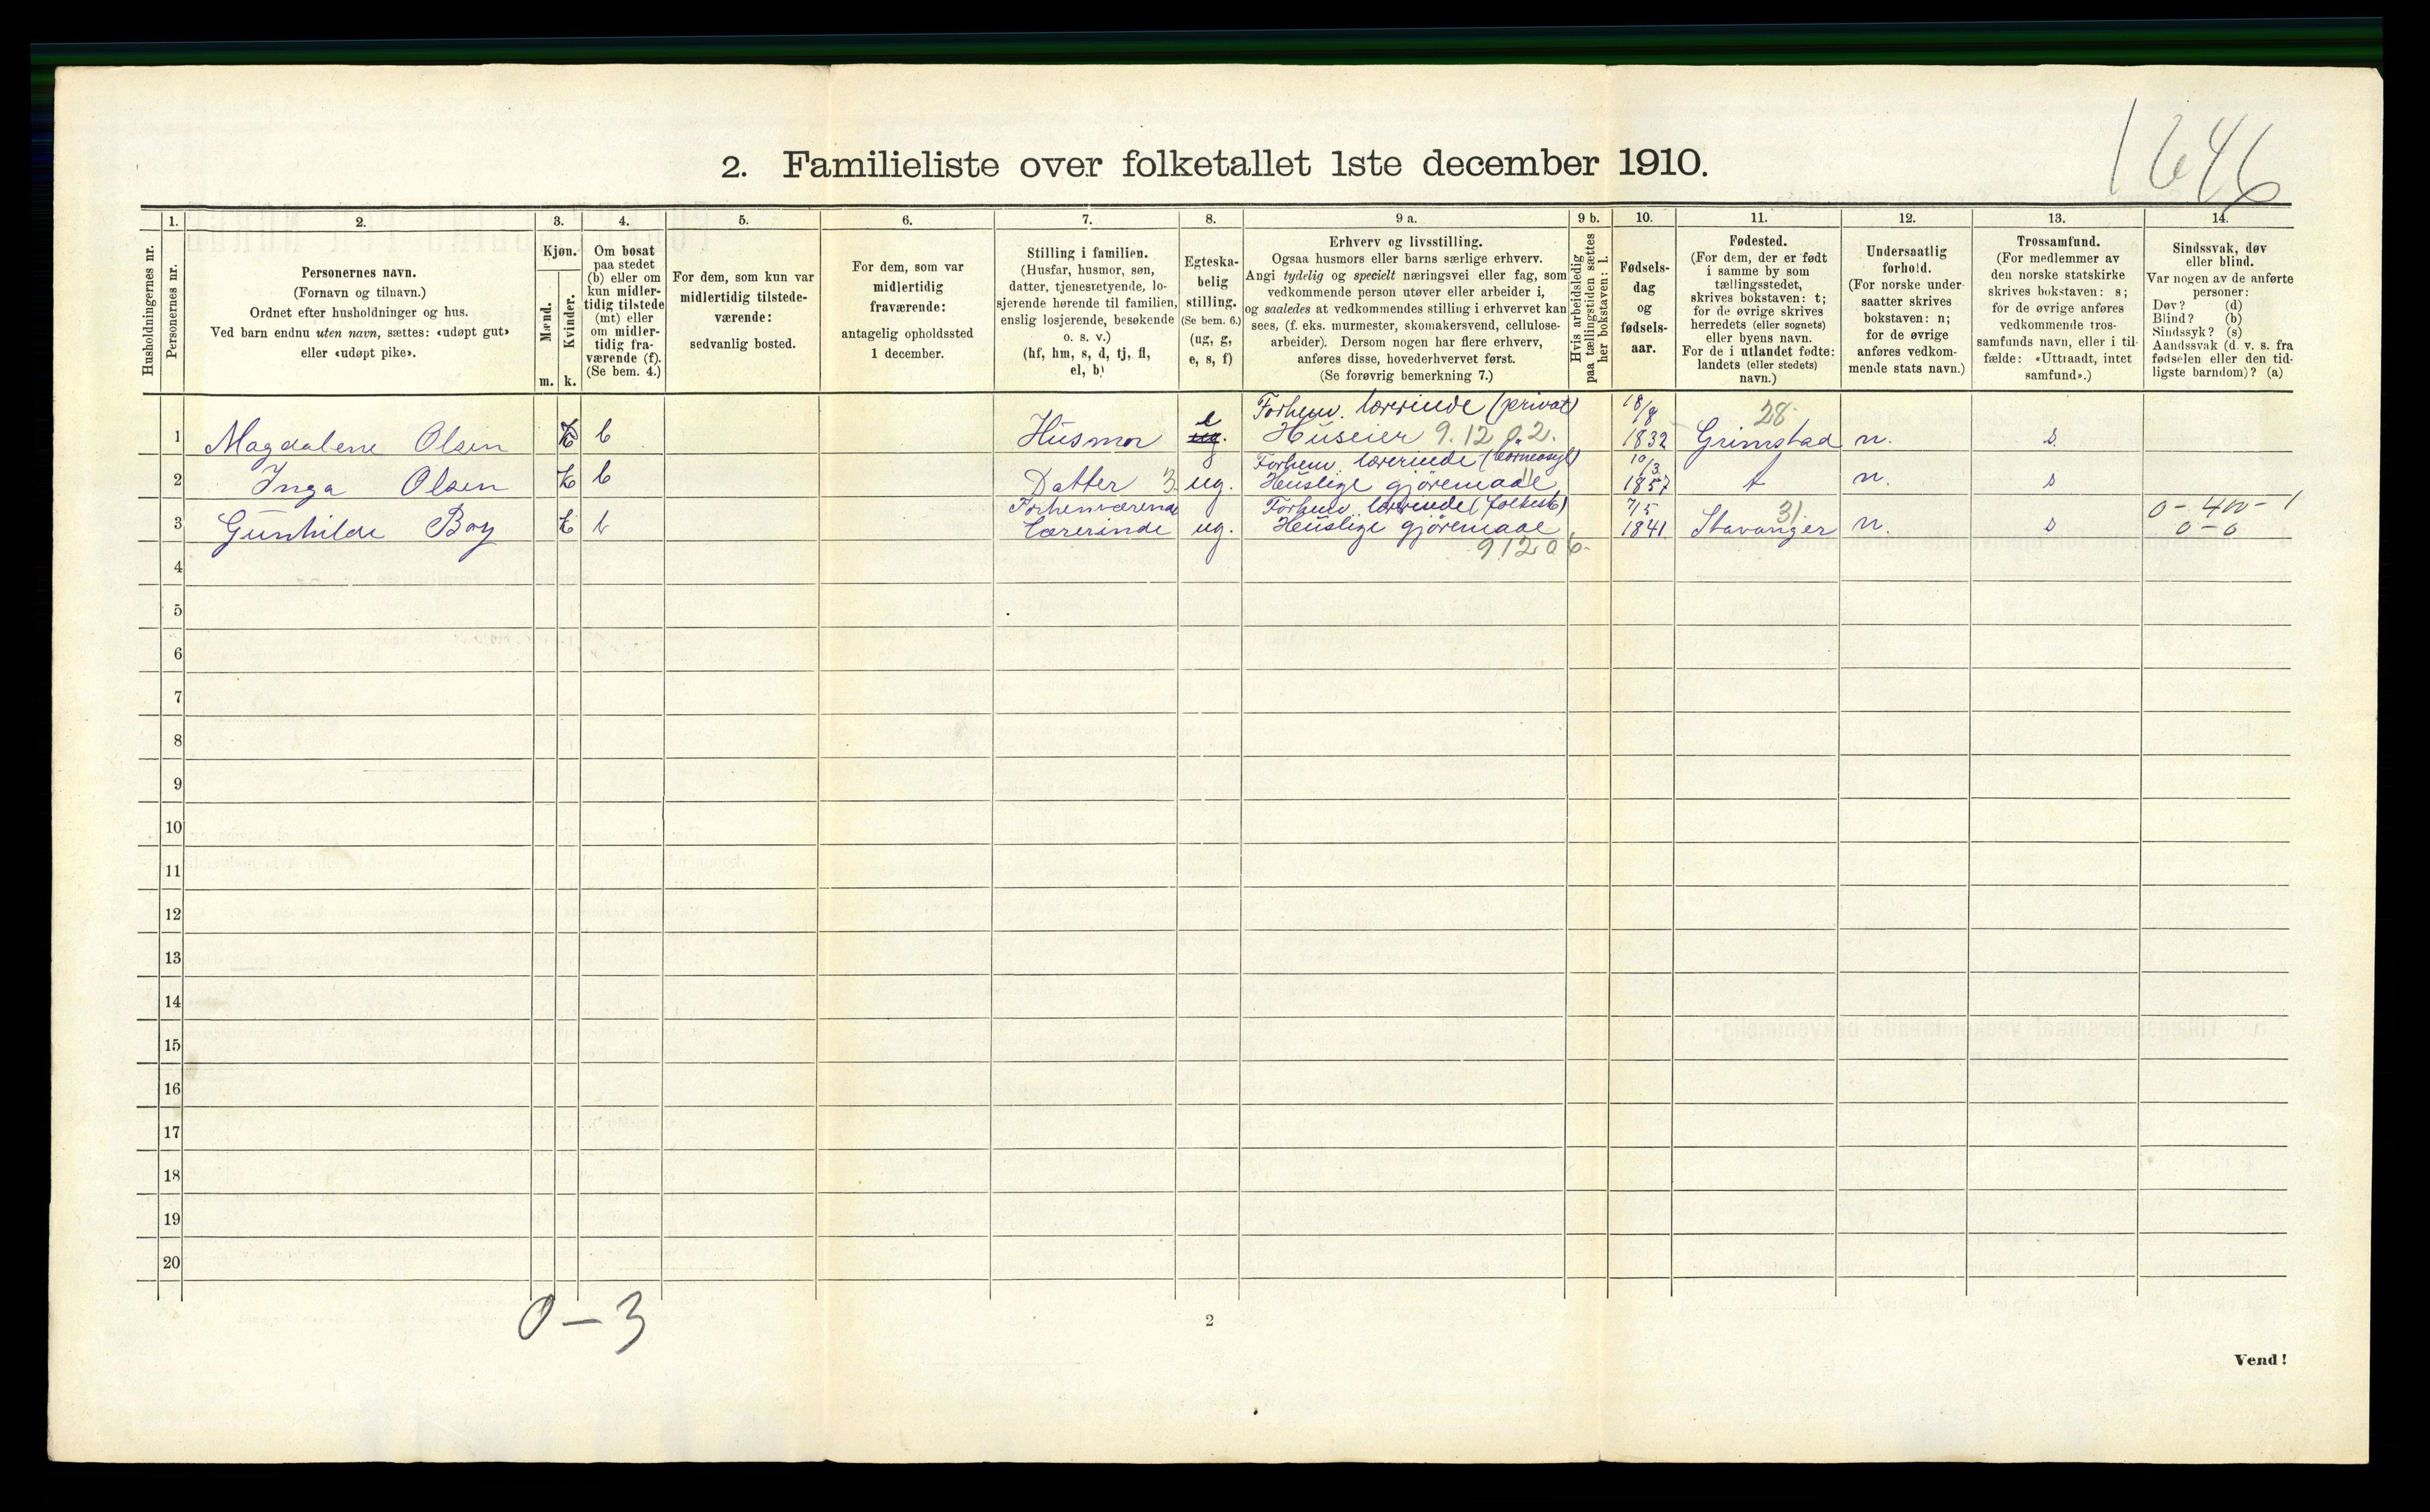 1646
2. Familieliste over folketallet 1ste december 1910.
1. 2. 3. 4. 5. 6. 7. 8. 9 a. 9 b. 10. 11. 12. 13. 14.
Husholdningernes nr.
Personernes nr.
Personernes navn.
(Fornavn og tilnavn.)
Ordnet efter husholdninger og hus.
Ved barn endnu uten navn, sættes: «udøpt gut»
eller «udøpt pike».
Kjøn.
Mænd.
Kvinder.
m. k.
Om bosat
paa stedet
(b) eller om
kun midler-
tidig tilstede
(mt) eller
om midler-
tidig fra-
værende (f).
(Se bem. 4.)
For dem, som kun var
midlertidig tilstede-
værende:
sedvanlig bosted.
For dem, som var
midlertidig
fraværende:
antagelig opholdssted
1 december.
Stilling i familien.
(Husfar, husmor, søn,
datter, tjenestetyende, lo-
sjerende hørende til familien,
enslig losjerende, besøkende
o. s. v.)
(hf, hm, s, d, tj, fl,
el, b)
Egteska-
belig
stilling.
(Se bem. 6.)
(ug, g,
e, s, f)
Erhverv og livsstilling.
Ogsaa husmors eller barns særlige erhverv.
Angi tydelig og specielt næringsvei eller fag, som
vedkommende person utøver eller arbeider i,
og saaledes at vedkommendes stilling i erhvervet kan
sees, (f. eks. murmester, skomakersvend, cellulose-
arbeider). Dersom nogen har flere erhverv,
anføres disse, hovederhvervet først.
(Se forøvrig bemerkning 7.)
Hvis arbeidsledig
paa tællingstiden sættes
her bokstaven: l.
Fødsels-
dag
og
fødsels-
aar.
Fødested.
(For dem, der er født
i samme by som
tællingsstedet,
skrives bokstaven: t;
for de øvrige skrives
herredets (eller sognets)
eller byens navn.
For de i utlandet fødte:
landets (eller stedets)
navn.)
Undersaatlig
forhold.
(For norske under-
saatter skrives
bokstaven: n;
for de øvrige
anføres vedkom-
mende stats navn.)
Trossamfund.
(For medlemmer av
den norske statskirke
skrives bokstaven: s;
for de øvrige anføres
vedkommende tros-
samfunds navn, eller i til-
fælde: «Uttraadt, intet
samfund».)
Sindssvak, døv
eller blind.
Var nogen av de anførte
personer:
Døv? (d)
Blind? (b)
Sindssyk? (s)
Aandssvak (d. v. s. fra
fødselen eller den tid-
ligste barndom)? (a)
Forhenv. lærerinde (privat) 18/8 28.
1 Magdalene Olsen k b Husmor e ug. Huseier 9.12 0.2. 1832 Grimstad n. s.
Forhenv. lærerinde 10/3
2 Inga Olsen k b Datter 3. ug. Huslige gjøremaal 1857 t n. s
Forhenværende Forhenv. lærerinde (folkesk) 7/5 31. 0 - 400 - 1
3 Gunhilde Boy k b Lærerinde ug. Huslige gjøremaal 1841 Stavanger n. s 0 - 0
9120 6.
4
5
6
7
8
9
10
11
12
13
14
15
16
17
18
19
20
0 - 3
2
Vend!